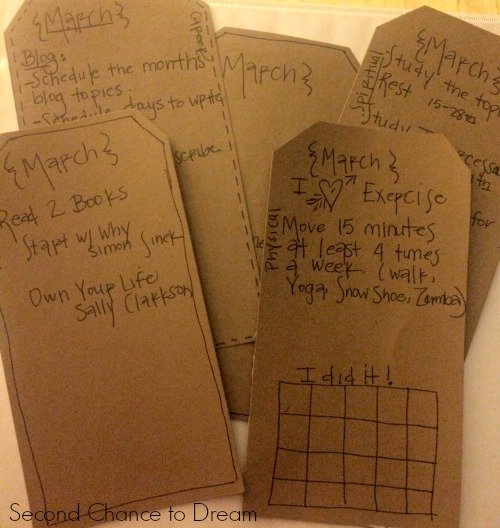 {March}
Blog:
-Schedule the months
blog topics.
-Schedule days to write
scribe.
{March}
{March}
Spiritual
Study the top
Rest 15-28th
Study
for
{March}
Read 2 Books
Start w/ Why
Simon Sinek
Own Your Life
Sally Clarkson
{March}
I Exercise
Physical
Move 15 minutes
at least 4 times
a week. (walk,
Yoga, Snow Shoe, Zumba)
I did it!
Second Chance to Dream